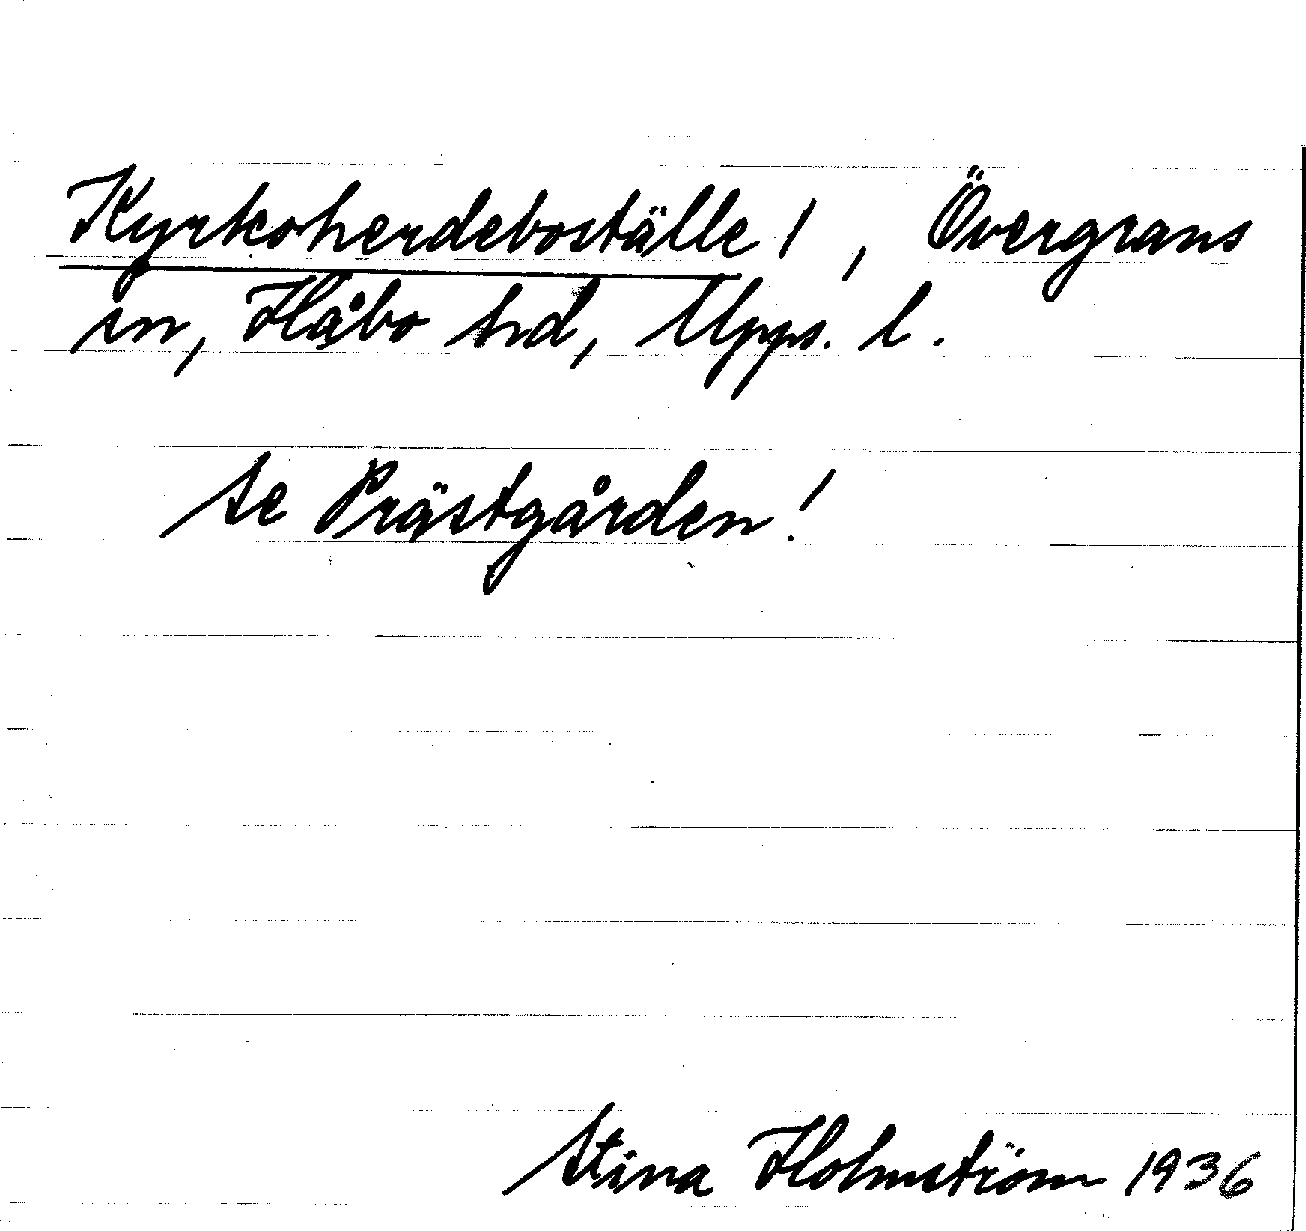 Kyrkoherdeboställe 1, Övergrans
sn, Håbo hd, Upps. l.
Se Prästgården!
Stina Holmström 1936